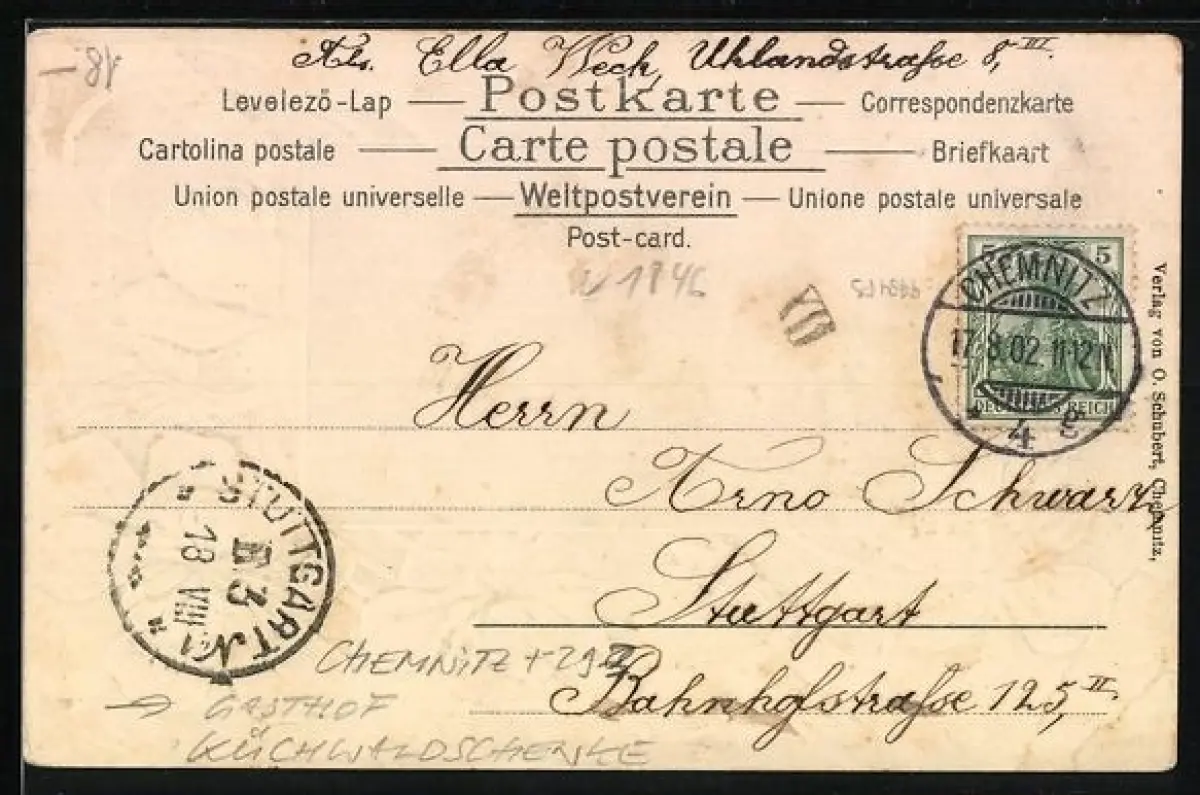 Abs. Ella Weck, Uhlandstraße 8, III.
18 –
Levelező-Lap — Postkarte — Correspondenzkarte
Cartolina postale — Carte postale — Briefkaart
Union postale universelle — Weltpostverein — Unione postale universale
Post-card.
1846
5 5
DEUTSCHES REICH
CHEMNITZ
17.8.02. 11-12
4 g
Verlag von O. Schubert, Chemnitz,
Herrn
Arno Schwarz
Stuttgart
Bahnhofstraße 125, II.
STUTTGART No 1
3
18 VIII
CHEMNITZ
→ GASTHOF
KÜCHWALDSCHENKE